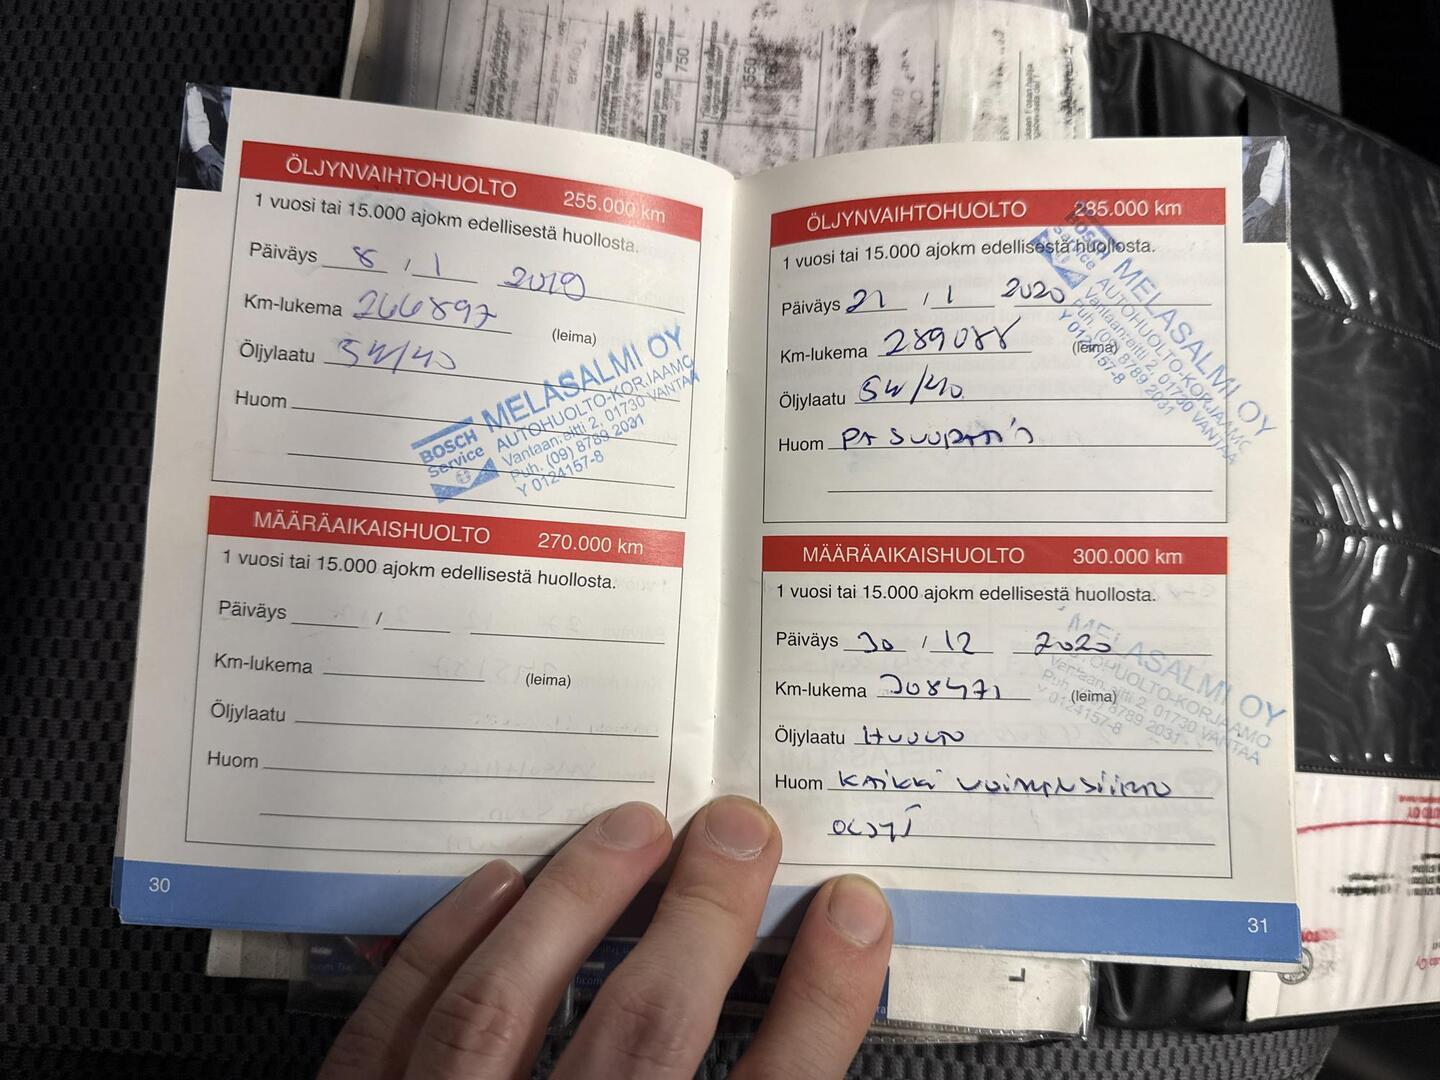 ÖLJYNVAIHTOHUOLTO 255.000 km
1 vuosi tai 15.000 ajokm edellisestä huollosta.
Päiväys 8 / 1 2019
Km-lukema 266897
(leima)
Öljylaatu 5W/40
Huom
BOSCH
Service
MELASALMI OY
AUTOHUOLTO-KORJAAMO
Vantaan:eitti 2, 01730 VANTAA
Puh. (09) 8789 2031
Y 0124157-8
MÄÄRÄAIKAISHUOLTO 270.000 km
1 vuosi tai 15.000 ajokm edellisestä huollosta.
Päiväys /
Km-lukema
(leima)
Öljylaatu
Huom
30
ÖLJYNVAIHTOHUOLTO 285.000 km
1 vuosi tai 15.000 ajokm edellisestä huollosta.
Päiväys 21 / 1 2020
Km-lukema 289088
(leima)
Öljylaatu 5W/40
Huom PA SUODATIN
BOSCH
Service
MELASALMI OY
AUTOHUOLTO-KORJAAMO
Vantaan:eitti 2, 01730 VANTAA
Puh. (09) 8789 2031
Y 0124157-8
MÄÄRÄAIKAISHUOLTO 300.000 km
1 vuosi tai 15.000 ajokm edellisestä huollosta.
Päiväys 30 / 12 2020
Km-lukema 308471
(leima)
Öljylaatu HUOLTO
Huom KAIKKI VOIMANSIIRTO
ÖLJYT
MELASALMI OY
AUTOHUOLTO-KORJAAMO
Vantaan:eitti 2, 01730 VANTAA
Puh. (09) 8789 2031
Y 0124157-8
31
750